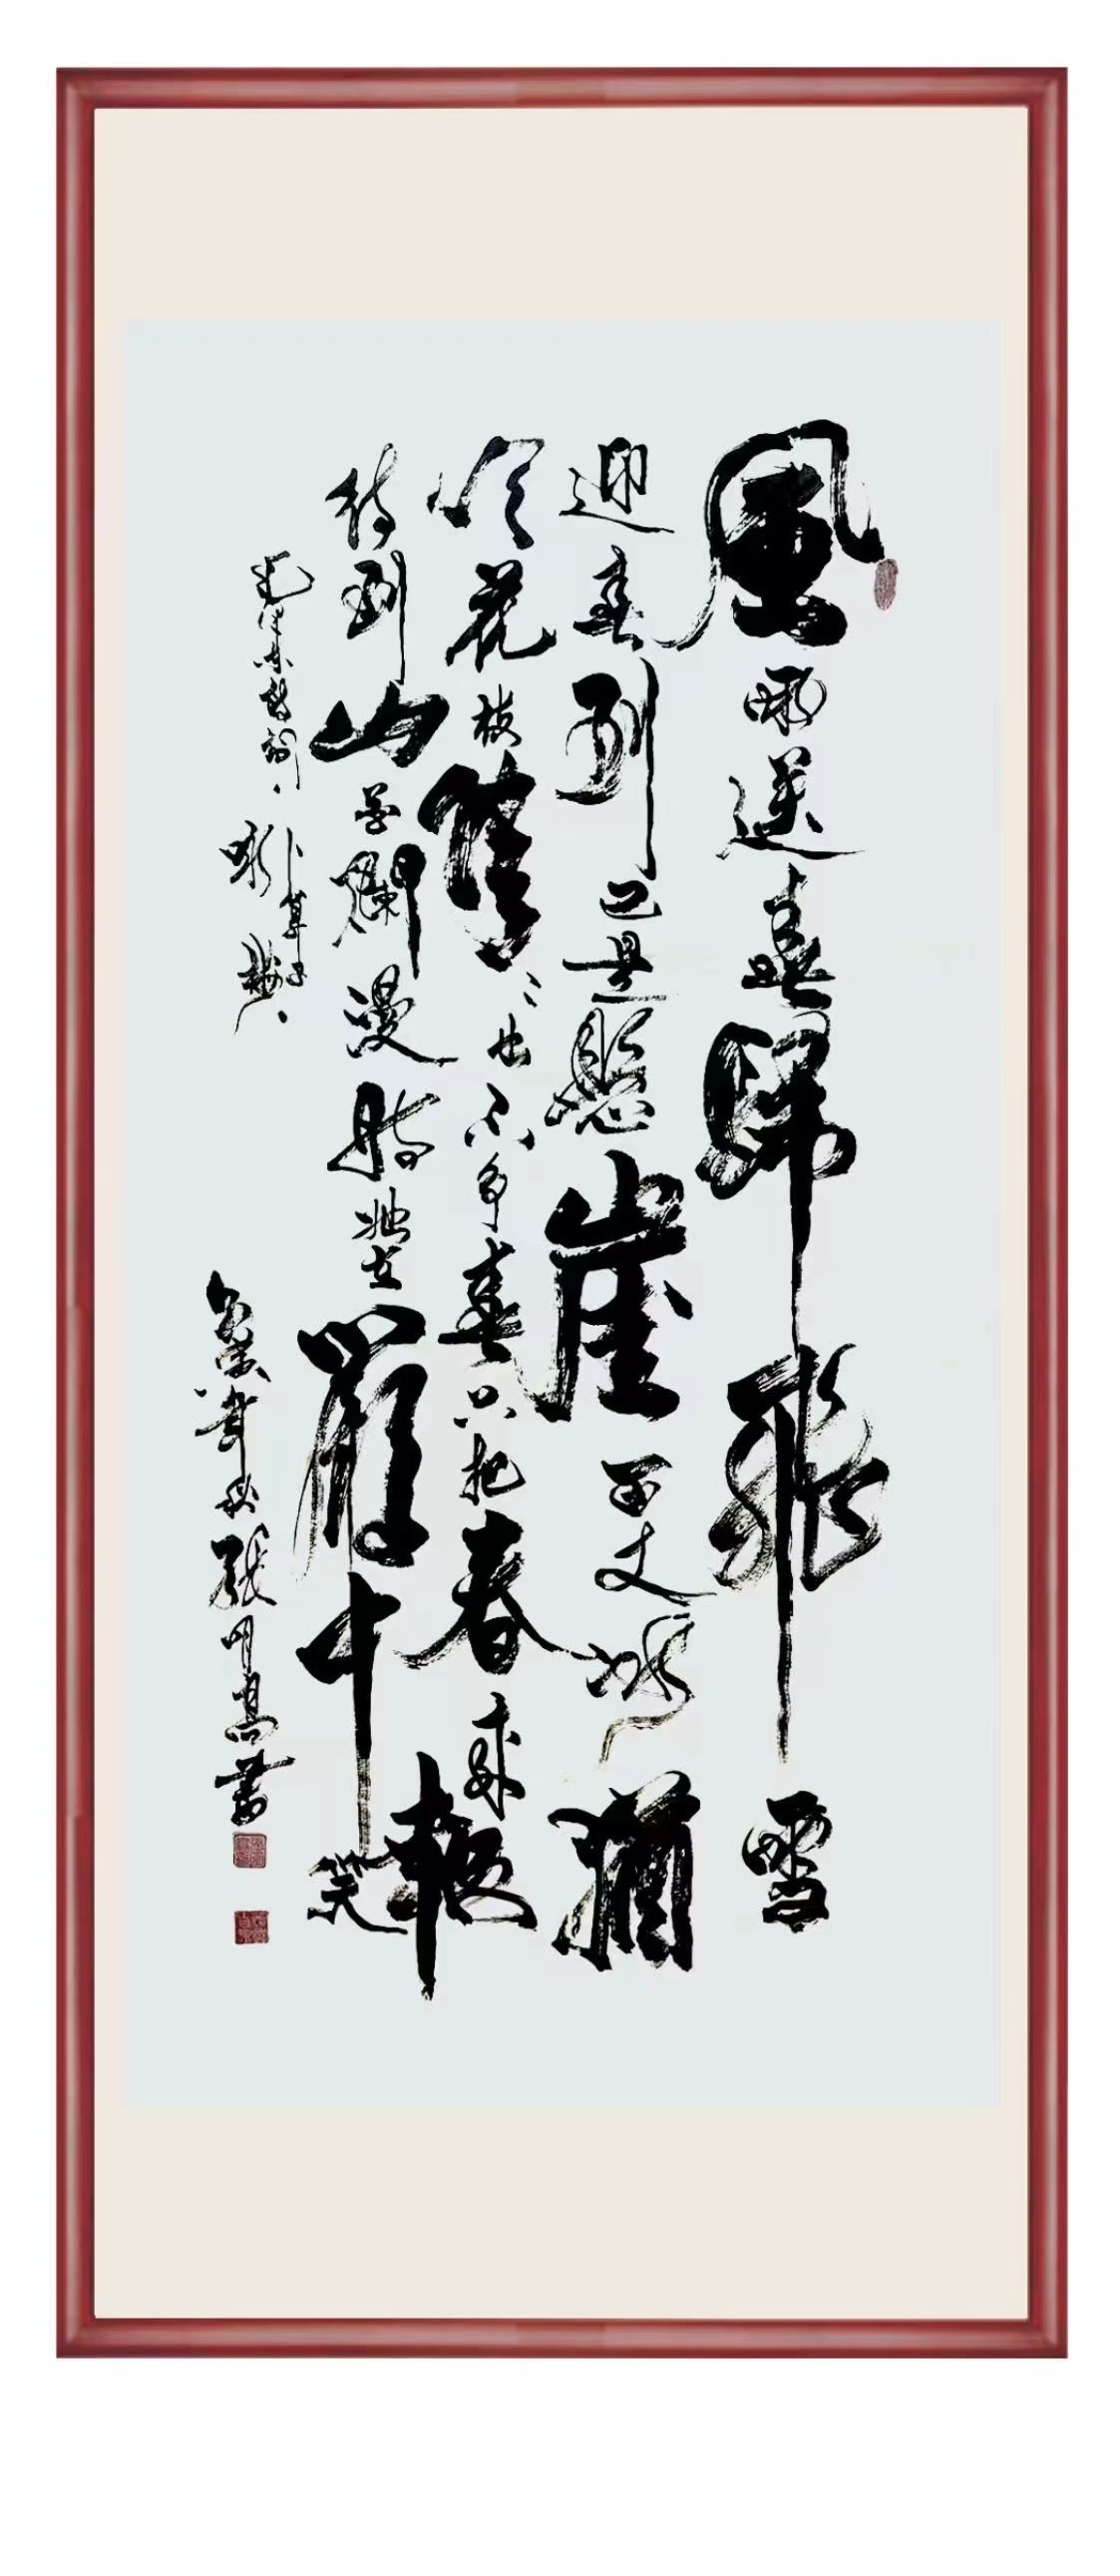 風雨送春歸飛雪
迎春到已是懸崖百丈冰猶
花枝俏、、也不争春只把春来報
待到山花爛漫時她在叢中笑
毛澤東詩詞、卜算子
詠梅、
年秋張明高書